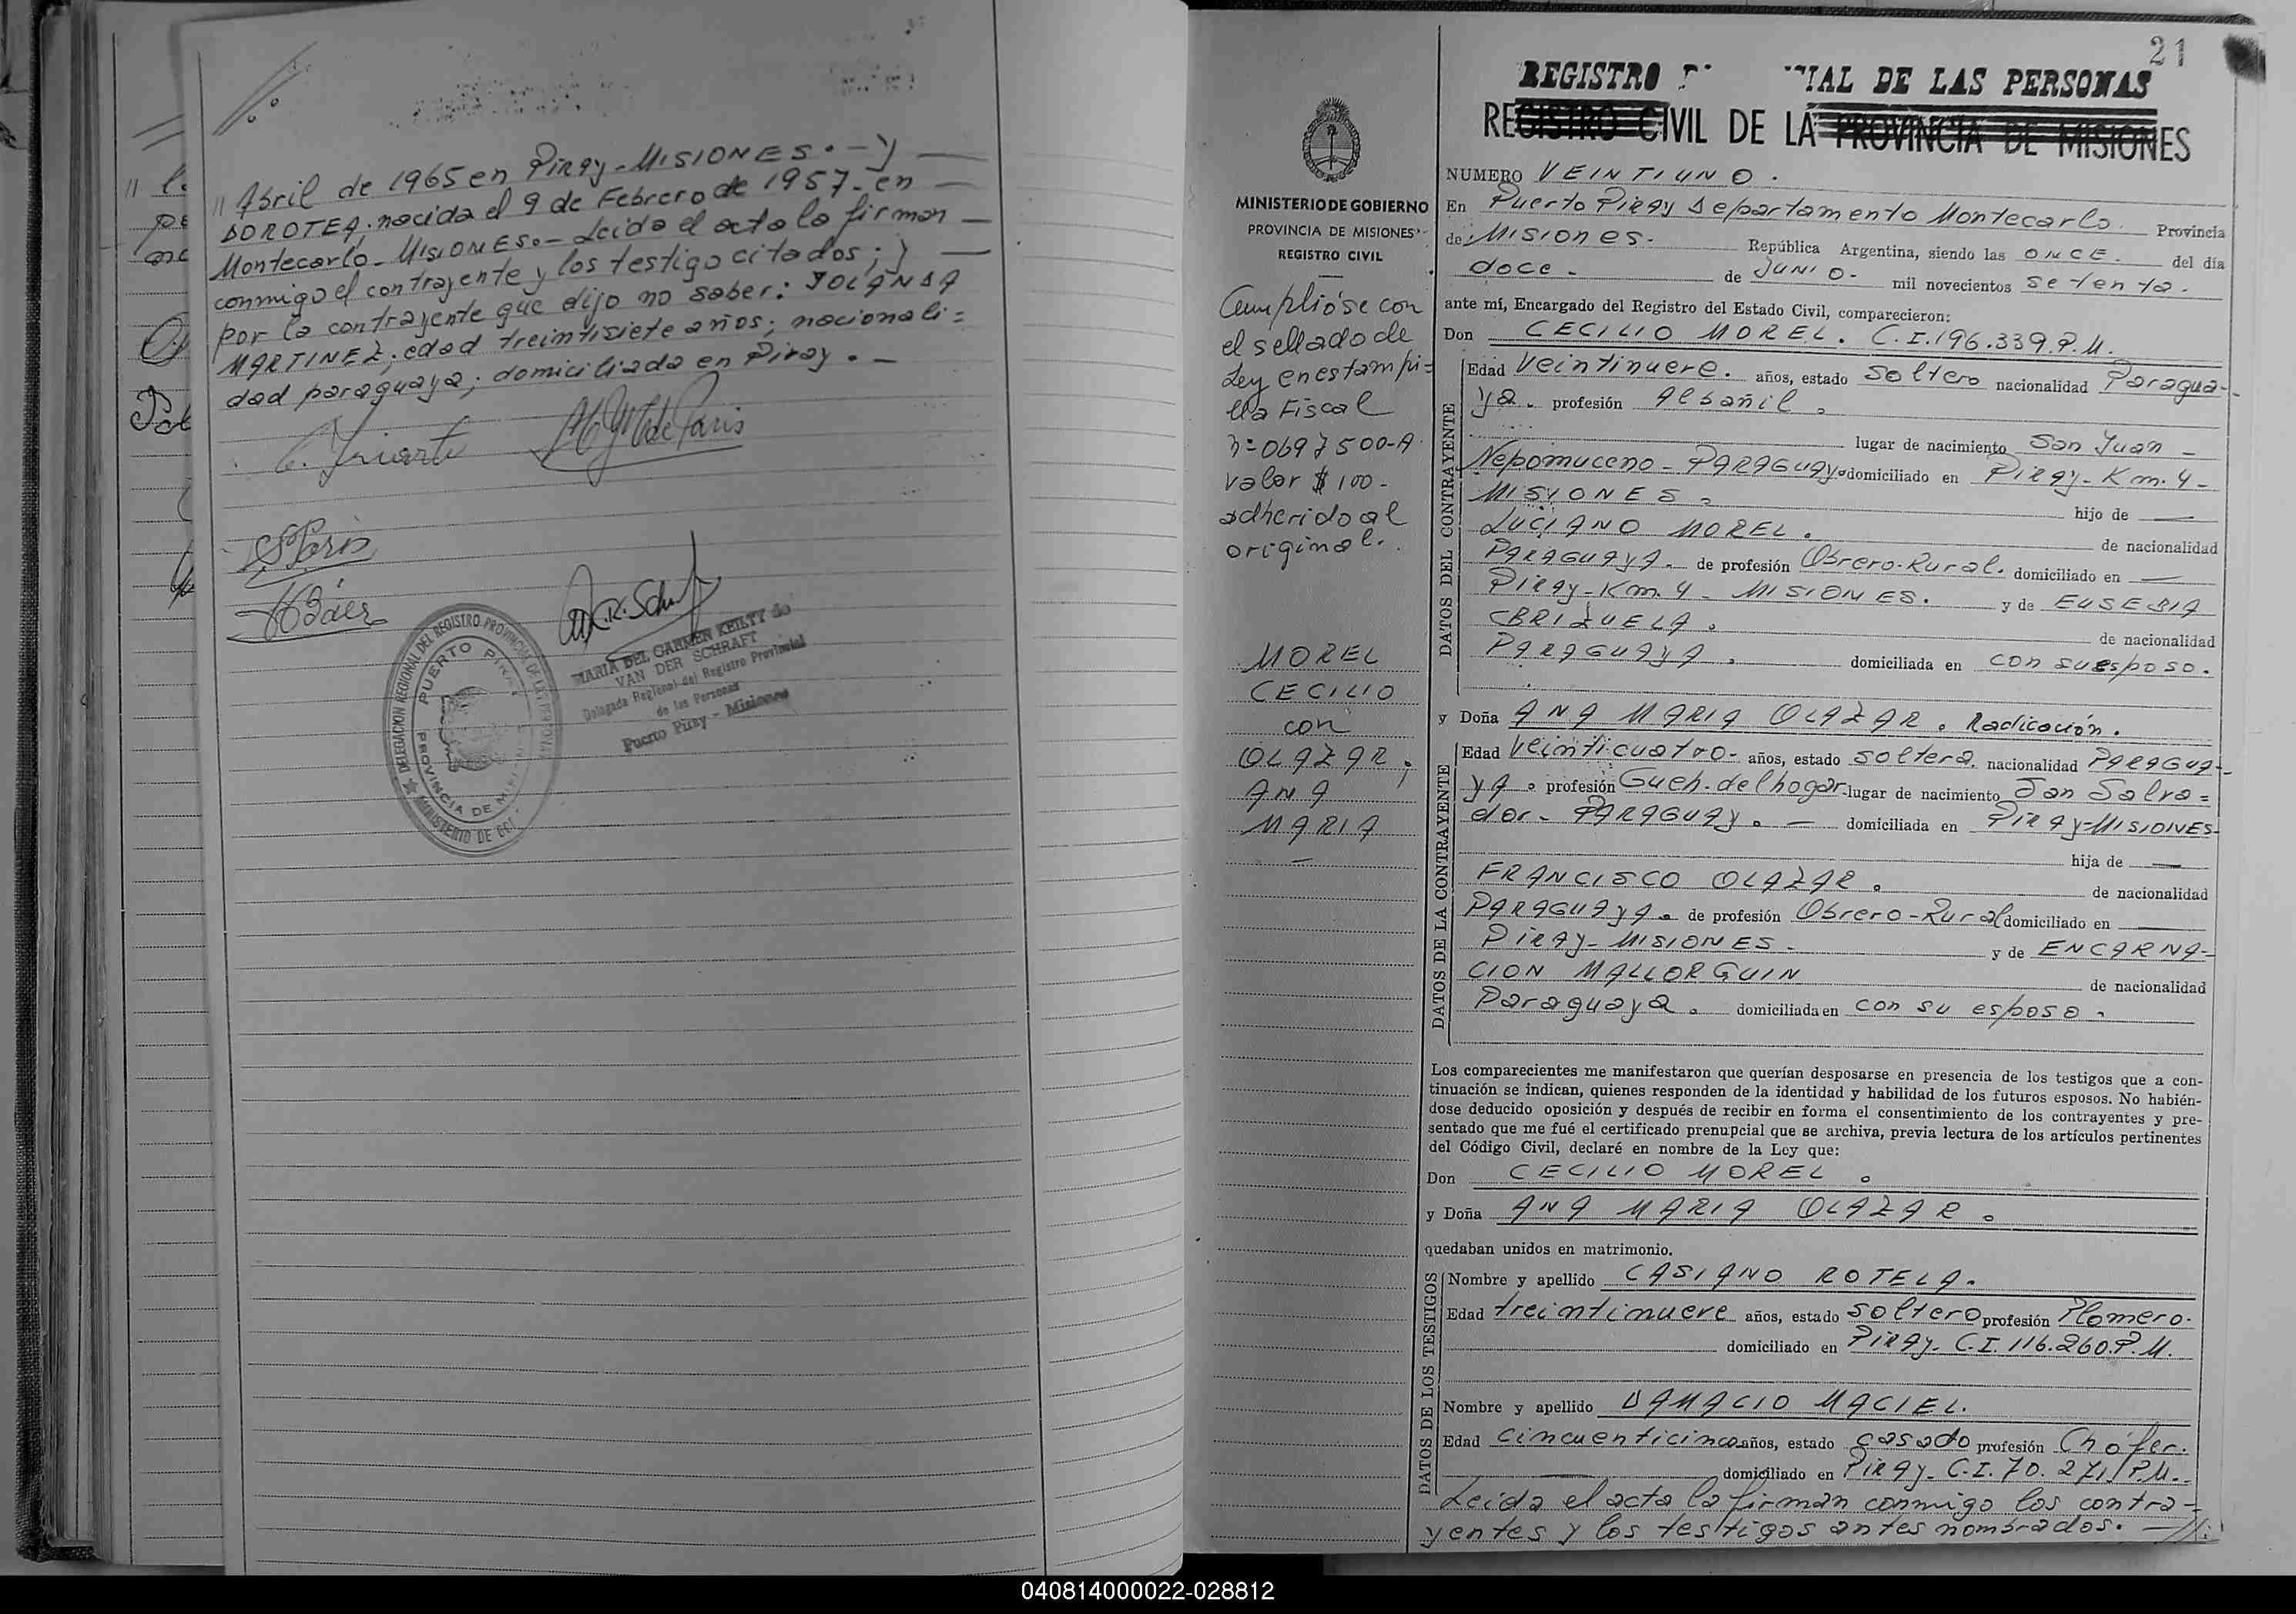 " Abril de 1965 en Piray-MISIONES.- y
DOROTEA; nacida el 9 de Febrero de 1957- en
Montecarlo- MISIONES.- Leida el acta la firman
conmigo el contrayente y los testigo citados; y
por la contrayente que dijo no saber: YOLANDA
MARTINEZ; edad treintisiete años; nacionali=
dad paraguaya; domiciliada en Piray.-
DELEGACION REGIONAL DEL REGISTRO PROVINCIAL DE LAS PERSONAS
PUERTO PIRAY
PROVINCIA DE MISIONES
MINISTERIO DE GOB.
MARIA DEL CARMEN KEILTY de
VAN DER SCHRAFT
Delegada Regional del Registro Provincial
de las Personas
Puerto Piray - Misiones
21
REGISTRO IAL DE LAS PERSONAS
REGISTRO CIVIL DE LA PROVINCIA DE MISIONES
MINISTERIO DE GOBIERNO
PROVINCIA DE MISIONES
REGISTRO CIVIL
Cumplióse con
el sellado de
Ley en estampi=
lla Fiscal
nº 0697500-A
valor $100-
adherido al
original.
MOREL
CECILIO
con
OLAZAR;
ANA
MARIA
NUMERO VEINTIUNO.
En Puerto Piray Departamento Montecarlo. Provincia
de Misiones. República Argentina, siendo las ONCE. del día
doce- de JUNIO- mil novecientos setenta.
ante mí, Encargado del Registro del Estado Civil, comparecieron:
Don CECILIO MOREL. C.I.196.339.P.M.
DATOS DEL CONTRAYENTE
Edad Veintinueve. años, estado soltero nacionalidad Paragua-
ya. profesión Albañil.
lugar de nacimiento San Juan-
Nepomuceno-PARAGUAY. domiciliado en Piray-Km.4-
MISIONES. hijo de
LUCIANO MOREL. de nacionalidad
PARAGUAYA. de profesión Obrero-Rural. domiciliado en
Piray-Km.4-MISIONES. y de EUSEBIA
BRIZUELA. de nacionalidad
PARAGUAYA. domiciliada en con su esposo.
y Doña ANA MARIA OLAZAR. Radicación.
DATOS DE LA CONTRAYENTE
Edad Veinticuatro- años, estado soltera. nacionalidad PARAGUA-
YA. profesión Queh. del hogar- lugar de nacimiento San Salva=
dor- PARAGUAY.- domiciliada en Piray-MISIONES-
hija de
FRANCISCO OLAZAR. de nacionalidad
PARAGUAYA. de profesión Obrero-Rural domiciliado en
Piray-MISIONES- y de ENCARNA-
CION MALLORGUIN de nacionalidad
Paraguaya. domiciliada en con su esposo.
Los comparecientes me manifestaron que querían desposarse en presencia de los testigos que a con-
tinuación se indican, quienes responden de la identidad y habilidad de los futuros esposos. No habién-
dose deducido oposición y después de recibir en forma el consentimiento de los contrayentes y pre-
sentado que me fué el certificado prenupcial que se archiva, previa lectura de los artículos pertinentes
del Código Civil, declaré en nombre de la Ley que:
Don CECILIO MOREL.
y Doña ANA MARIA OLAZAR.
quedaban unidos en matrimonio.
DATOS DE LOS TESTIGOS
Nombre y apellido CASIANO ROTELA.
Edad treintinueve años, estado soltero profesión Plomero.
domiciliado en Piray- C.I.116.260.P.M.
Nombre y apellido DAMACIO MACIEL.
Edad cincuenticinco años, estado casado profesión Chófer.
domiciliado en Piray- C.I.70.271.P.M.-
Leida el acta la firman conmigo los contra-
yentes y los testigos antes nombrados.- //.
040814000022-028812